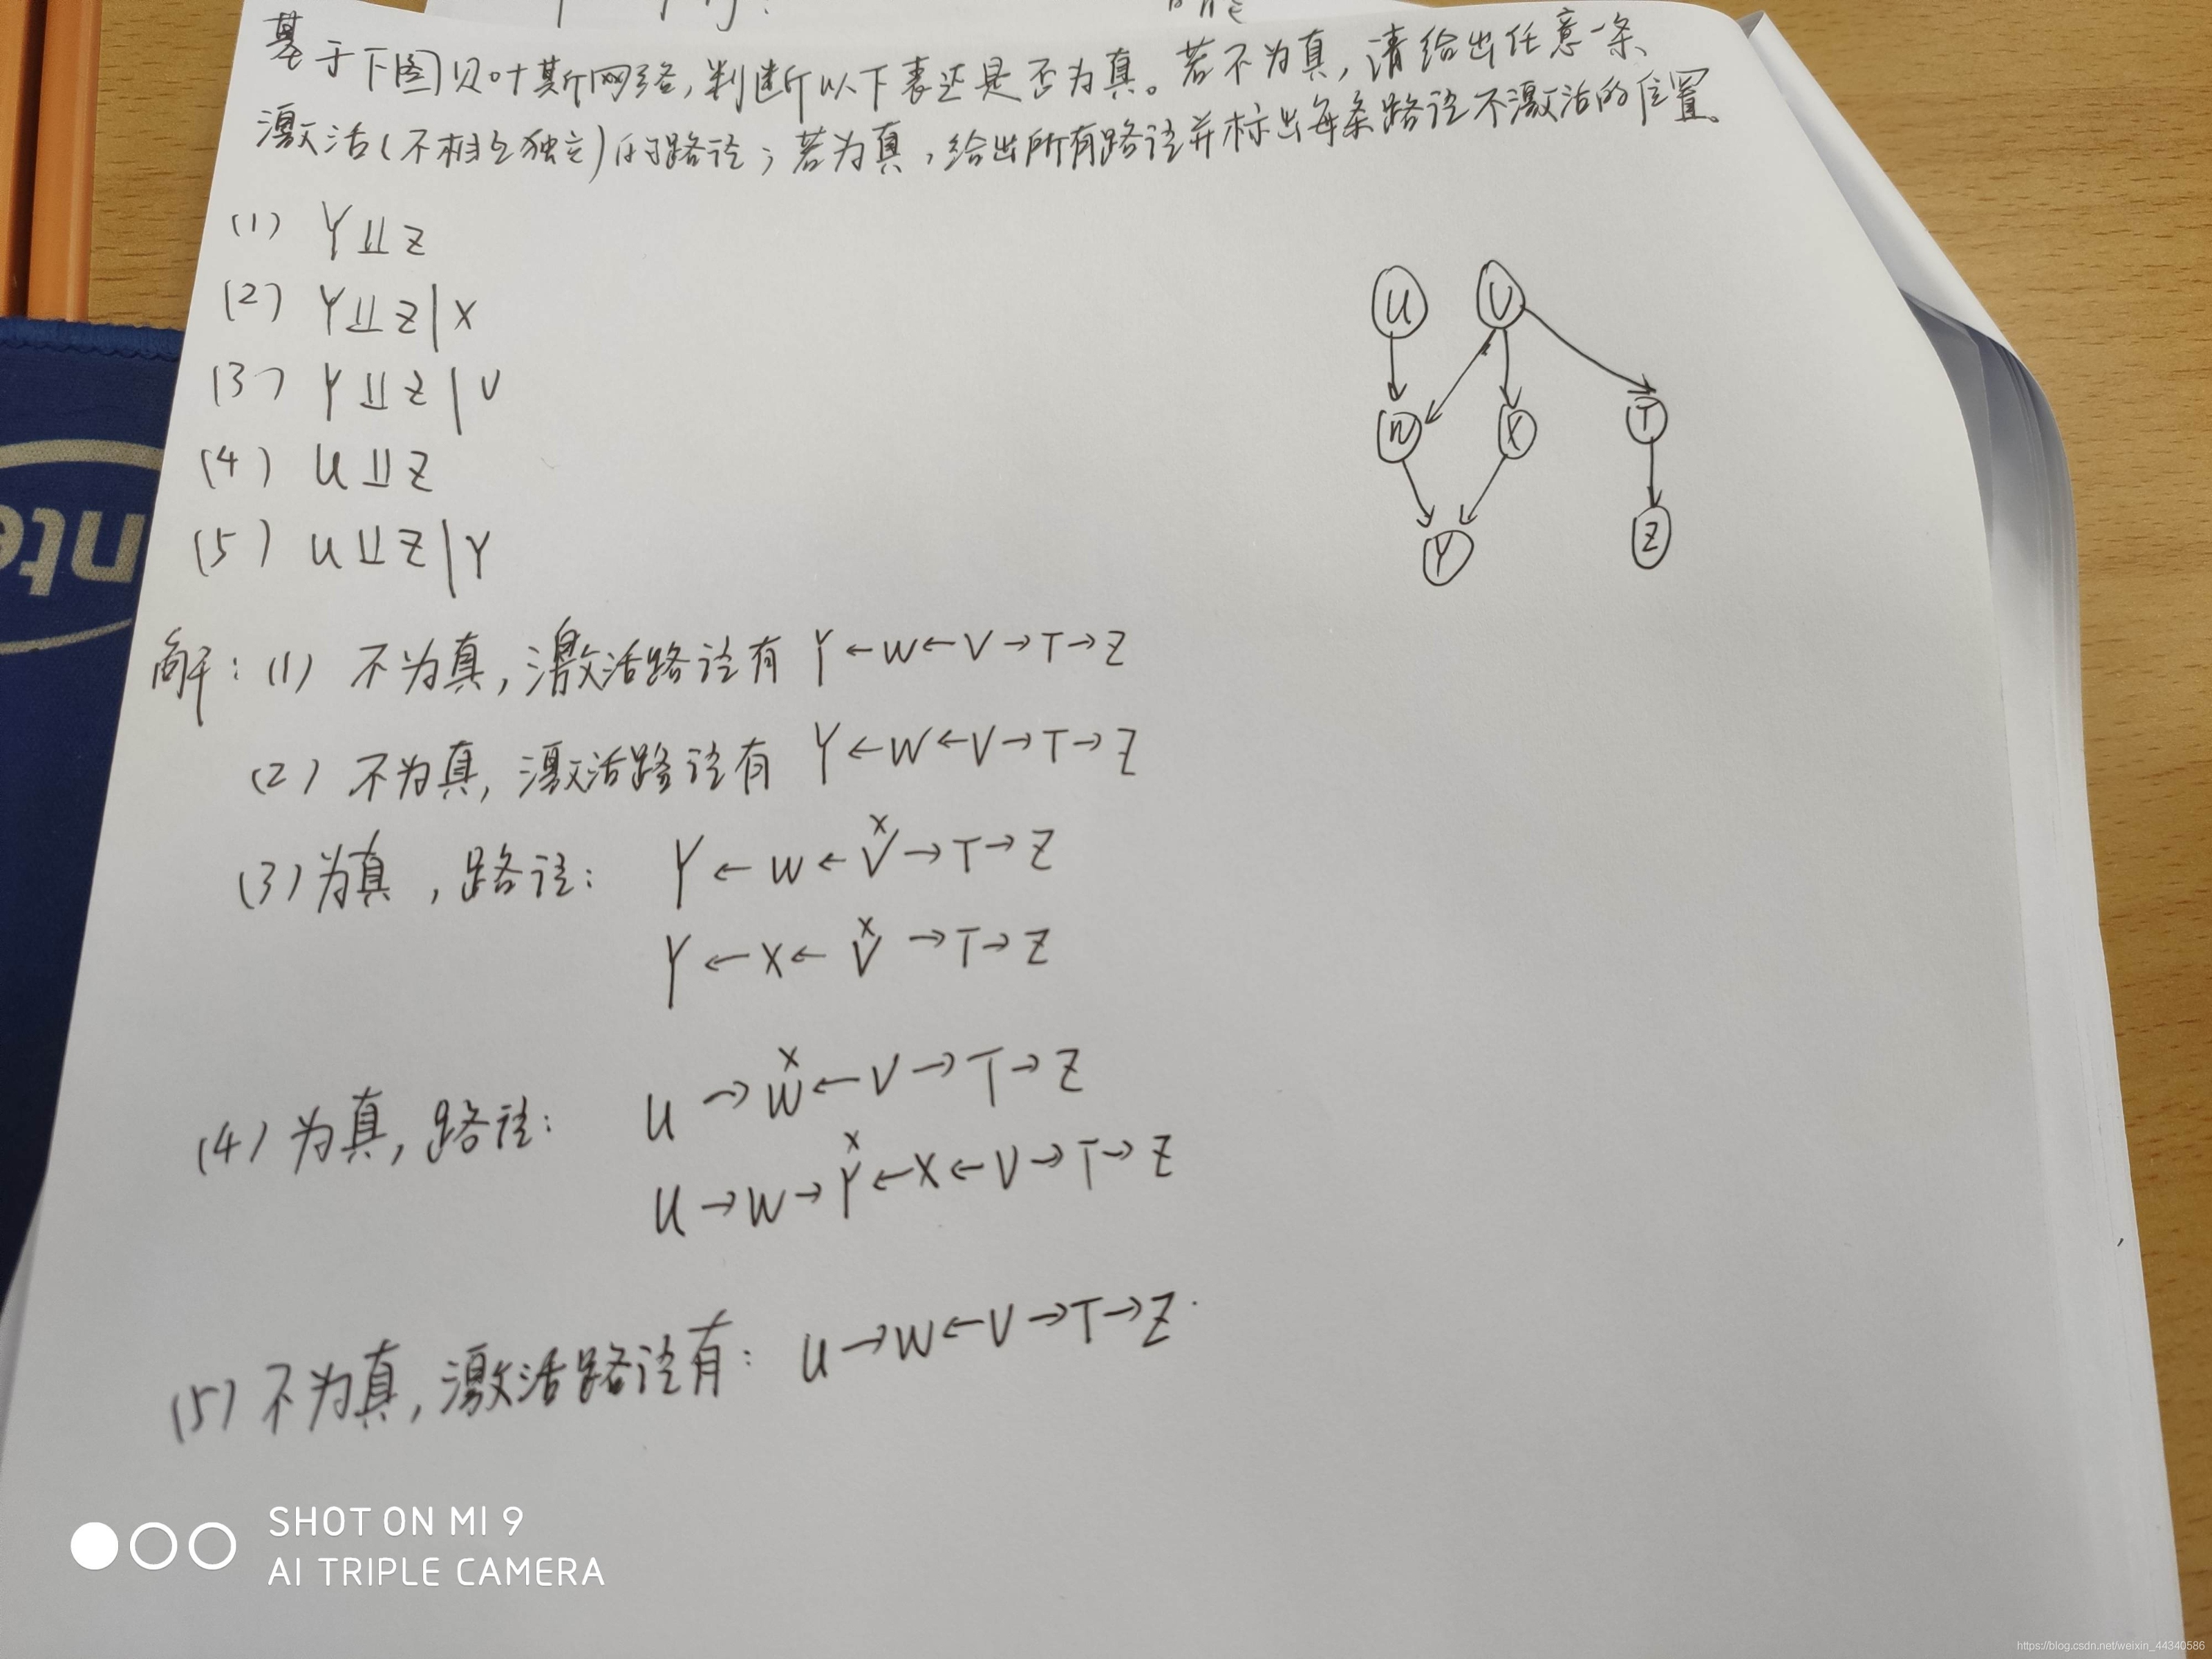 基于下图贝叶斯网络,判断以下表述是否为真。若不为真,请给出任意一条
激活(不相互独立)的路径;若为真,给出所有路径并标出每条路径不激活的位置。
(1) Y⫫Z
(2) Y⫫Z|X
(3) Y⫫Z|V
(4) U⫫Z
(5) U⫫Z|Y
U V
W X T
Y Z
解:(1) 不为真,激活路径有 Y←W←V→T→Z
(2) 不为真,激活路径有 Y←W←V→T→Z
x
(3)为真,路径: Y←W←V→T→Z
x
Y←X←V→T→Z
x
(4)为真,路径: U→W←V→T→Z
x
U→W→Y←X←V→T→Z
(5)不为真,激活路径有: U→W←V→T→Z.
SHOT ON MI 9
AI TRIPLE CAMERA
https://blog.csdn.net/weixin_44340586